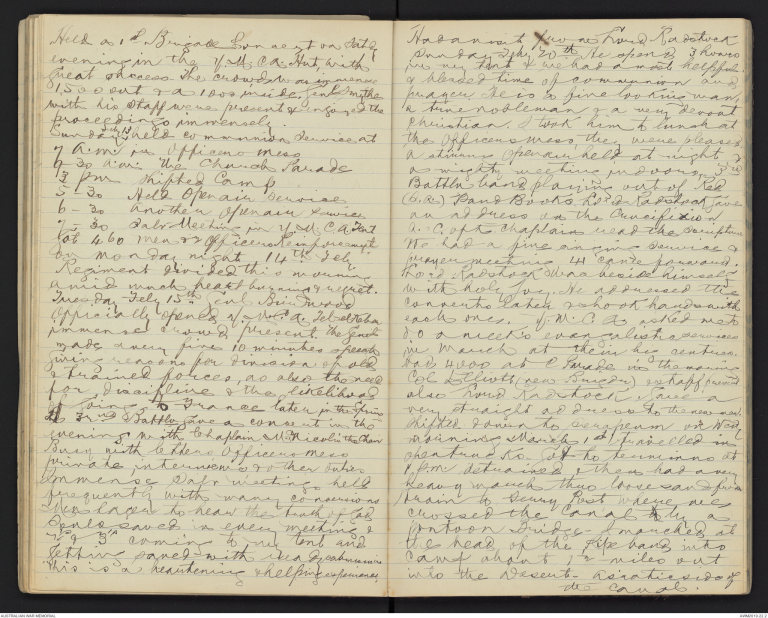 Held a 1st Brigade Concert on Satdy
evening in the Y.M.C.A. Hut, with
great success. The crowd was immense
1,500 out & a 1000 inside, Genl Smythe
with his Staff were present & enjoyed the
proceedings immensely.
Sunday 13th held communion Service at
7 A.M. in Officers mess
9-30 a.m. the Church Parade
3 pm Shifted Camp
5-30 Held Open air Service
6-30 another Open air Service
7-30 Salv Meeting in Y.M.C.A. Tent
Got 460 men & Officers Reinforcement
on Monday night 14th Feby.
Regiment divided this morning
amid much heartburning & regret.
Tuesday Feby 15th Genl Birdwood
officially opened Y.M.C.A. Tel-el-Keber
immense crowd present. The Genl
made a very fine 10 minutes speech
giving reasons for division of old
& trained forces, as also the need
for discipline & the likelihood
of going to France later in the Spring
3rd Battln gave a concert in the
evening, with Chaplain McNicol in the Chair
Busy with letters Officers mess
private interviews & other duties
Immense Salv meetings held
frequently with many conversions
Men eager to hear the truth of God
Souls saved in every meeting &
2 & 3 coming to my tent and
getting saved with
This is a heartening & helping experience
Had a visit from Lord Radstock
Sunday Feby 20th He spent 3 hours
in my tent & we had a most helpful
& blessed time of communion and
prayer. He is a fine looking man,
a true nobleman & a very devout
Christian. I took him to lunch at
the Officers mess, they were pleased
a stirring Open air held at night &
a mighty meeting indoors, 3rd
Battln band playing out of Red
Band Books. Lord Radstock gave
an address on the Crucifixion
A.C. of E. Chaplain read the Scripture
We had a fine singing Service &
prayer meeting 41 came forward.
Lord Radstock was beside himself
with holy joy. He addressed the
converts later & shook hands with
each one. Y.M.C.A. asked me to
do a weeks evangelistic services
in March at their big centres.
Had 4000 at C Parade in the morning
Col Elliott (new Brigdr) & staff present
also Lord Radstock. I gave a
very straight address to the new men
Shifted down to Serapeum on Wed
morning March 1st travelled in
open trucks. Got to terminus at
1 pm detrained & then had a very
heavy march thro loose sand from
train to Ferry Post where we
crossed the Canal by a
pontoon Bridge - I marched at
the head of the Pipe band into
Camp about 1½ miles out
into the Desert - Asiatic side of
the canal.
AUSTRALIAN WAR MEMORIAL